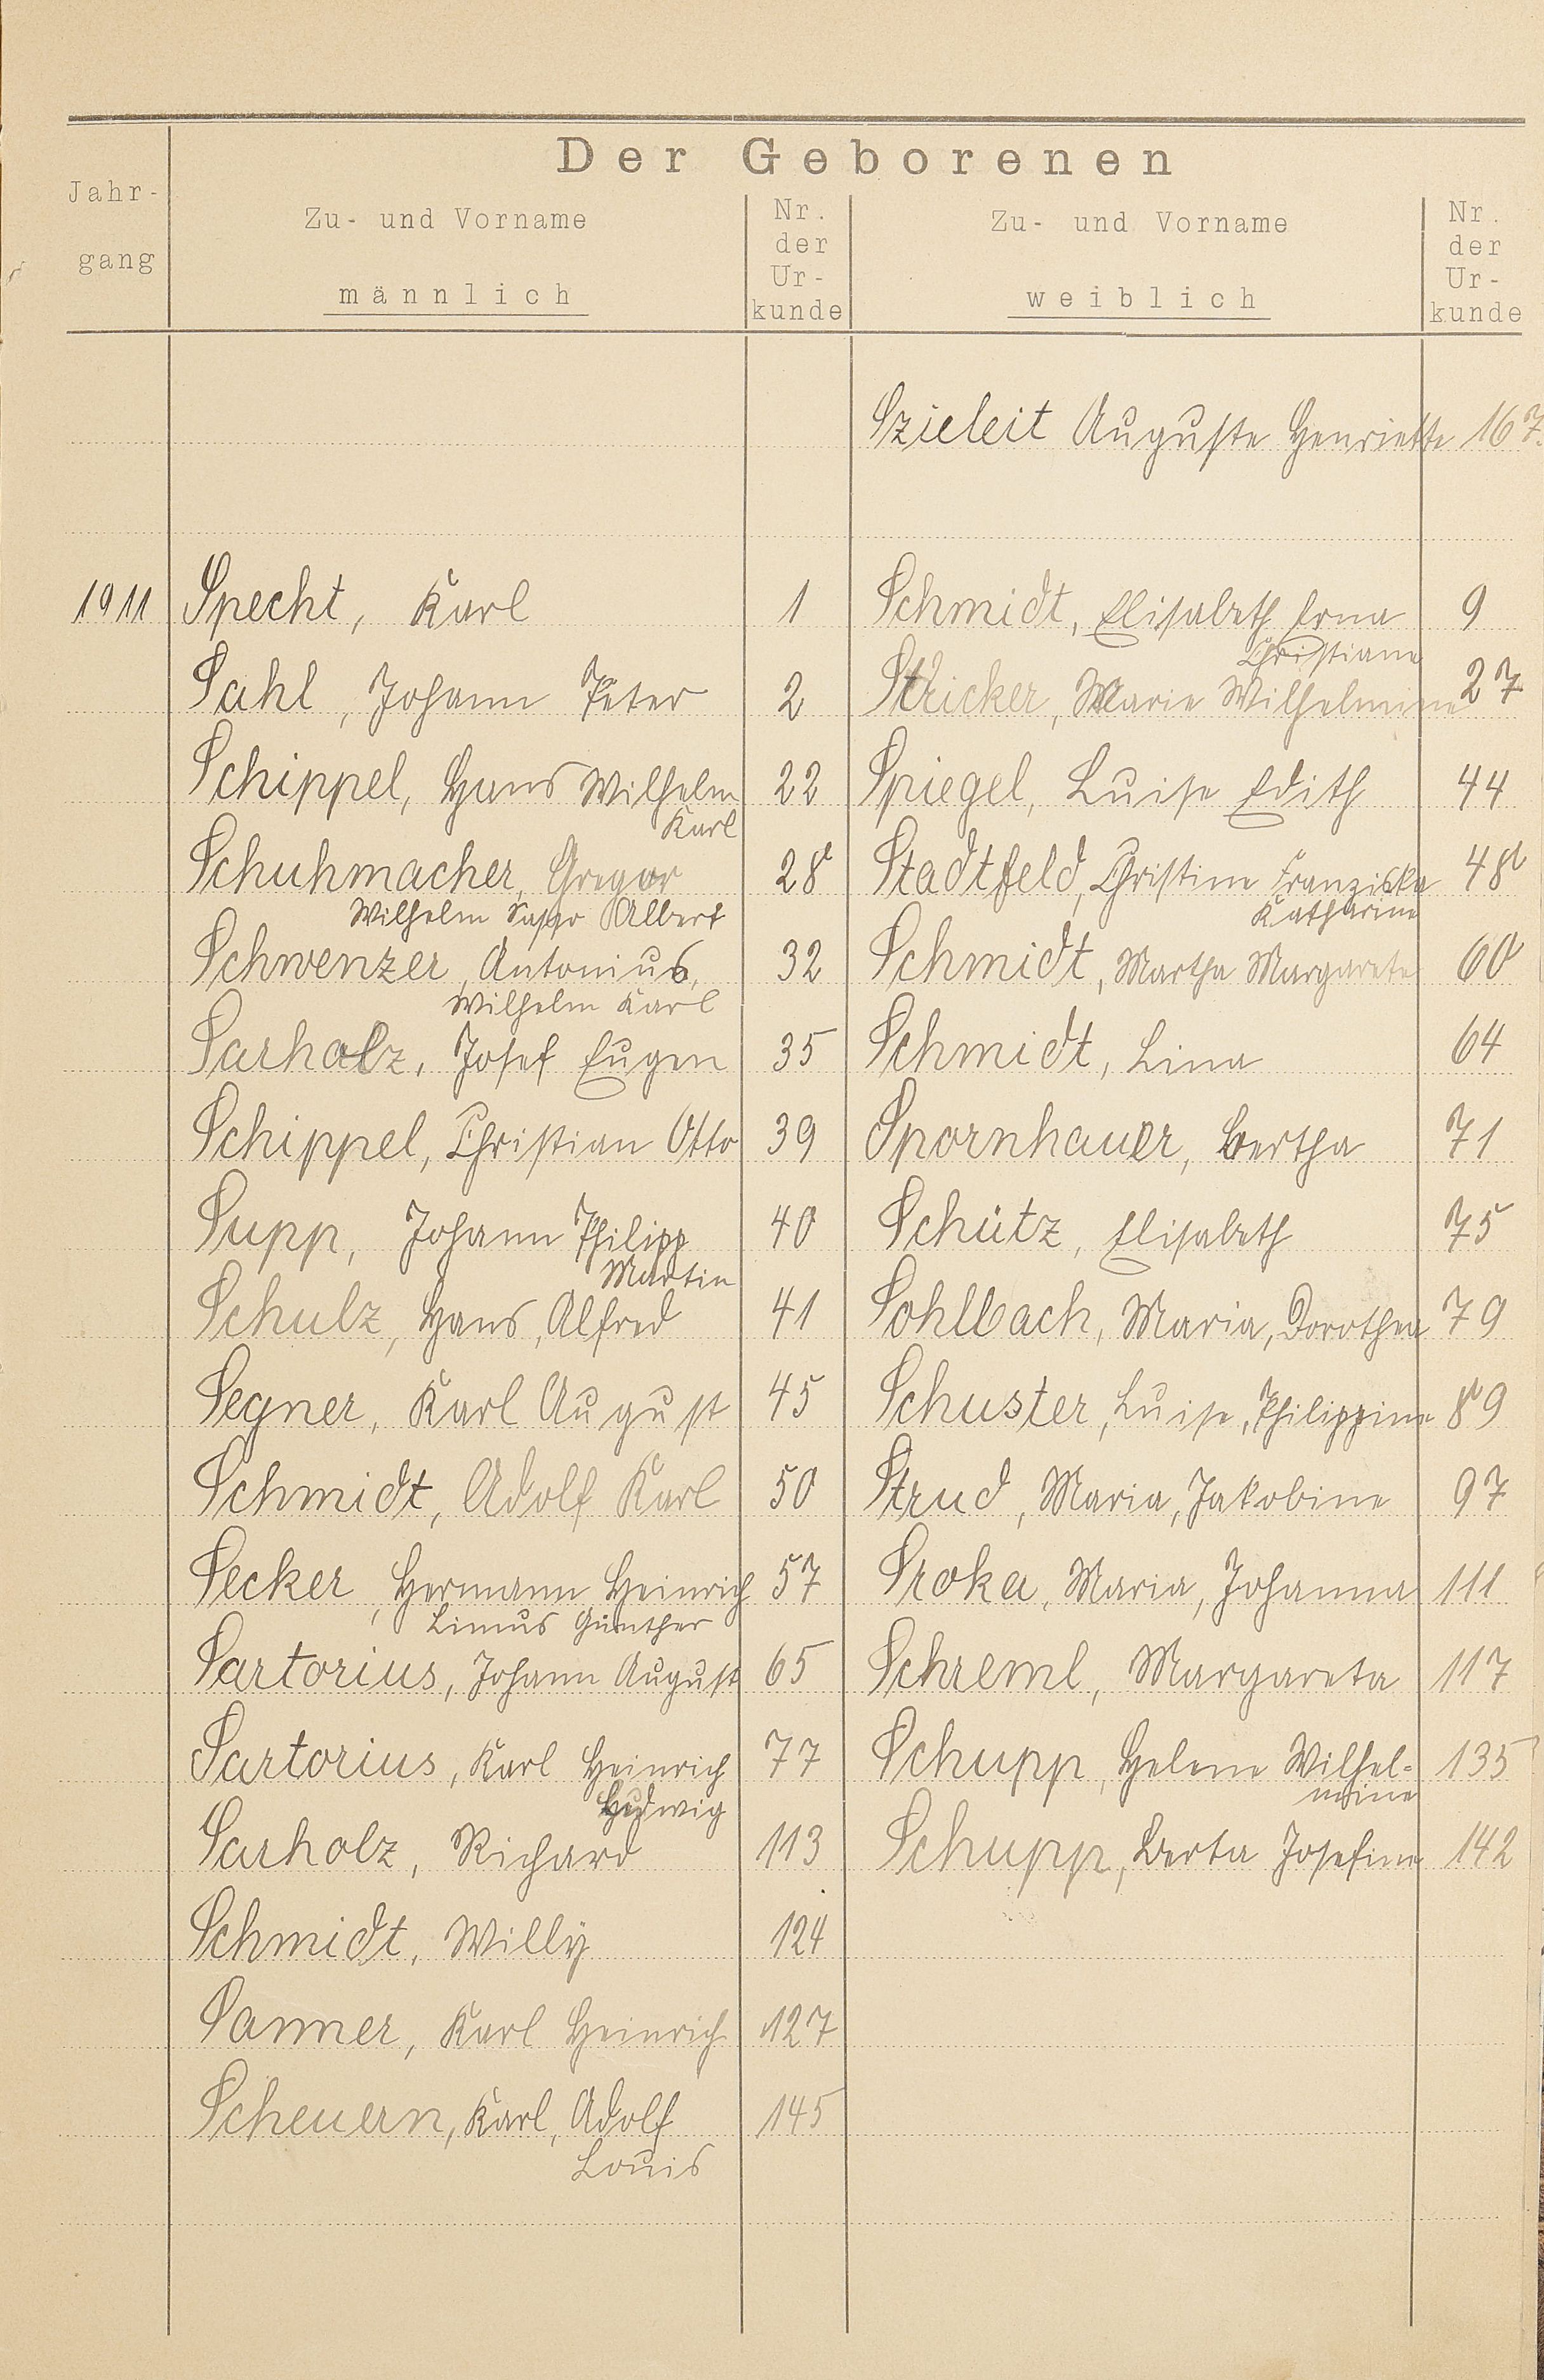 Der Geborenen
Jahr-
gang
Zu- und Vorname
männlich
Nr.
der
Ur-
kunde
Zu- und Vorname
weiblich
Nr.
der
Ur-
kunde
Szieleit Auguste Henriette 167.
1911 Specht, Karl 1 Schmidt, Elisabeth Erna 9
Christiane
Sahl, Johann Peter 2 Stricker, Marie Wilhelmine 27
Schippel, Hans Wilhelm 22 Spiegel, Luise Edith 44
Karl
Schuhmacher, Gregor 28 Stadtfeld, Christine Franziska 48
Wilhelm Albert Katharine
Schwenzer, Antonius, 32 Schmidt, Martha Margarete 60
Wilhelm Karl
Sarholz, Josef Eugen 35 Schmidt, Lina 64
Schippel, Christian Otto 39 Spornhauer, Bertha 71
Supp, Johann Philipp 40 Schütz, Elisabeth 75
Martin
Schulz, Hans, Alfred 41 Sohlbach, Maria, Dorothea 79
Segner, Karl August 45 Schuster, Luise, Philippine 89
Schmidt, Adolf Karl 50 Strud, Maria, Jakobine 97
Secker, Hermann Heinrich 57 Sroka, Maria, Johanna 111
Linus Günther
Sartorius, Johann August 65 Schreml, Margareta 117
Sartorius, Karl Heinrich 77 Schupp, Helene Wilhel-
mine 135
Ludwig
Sarholz, Richard 113 Schupp, Berta Josefine 142
Schmidt, Willy 124
Sanner, Karl Heinrich 127
Scheuern, Karl, Adolf 145
Louis